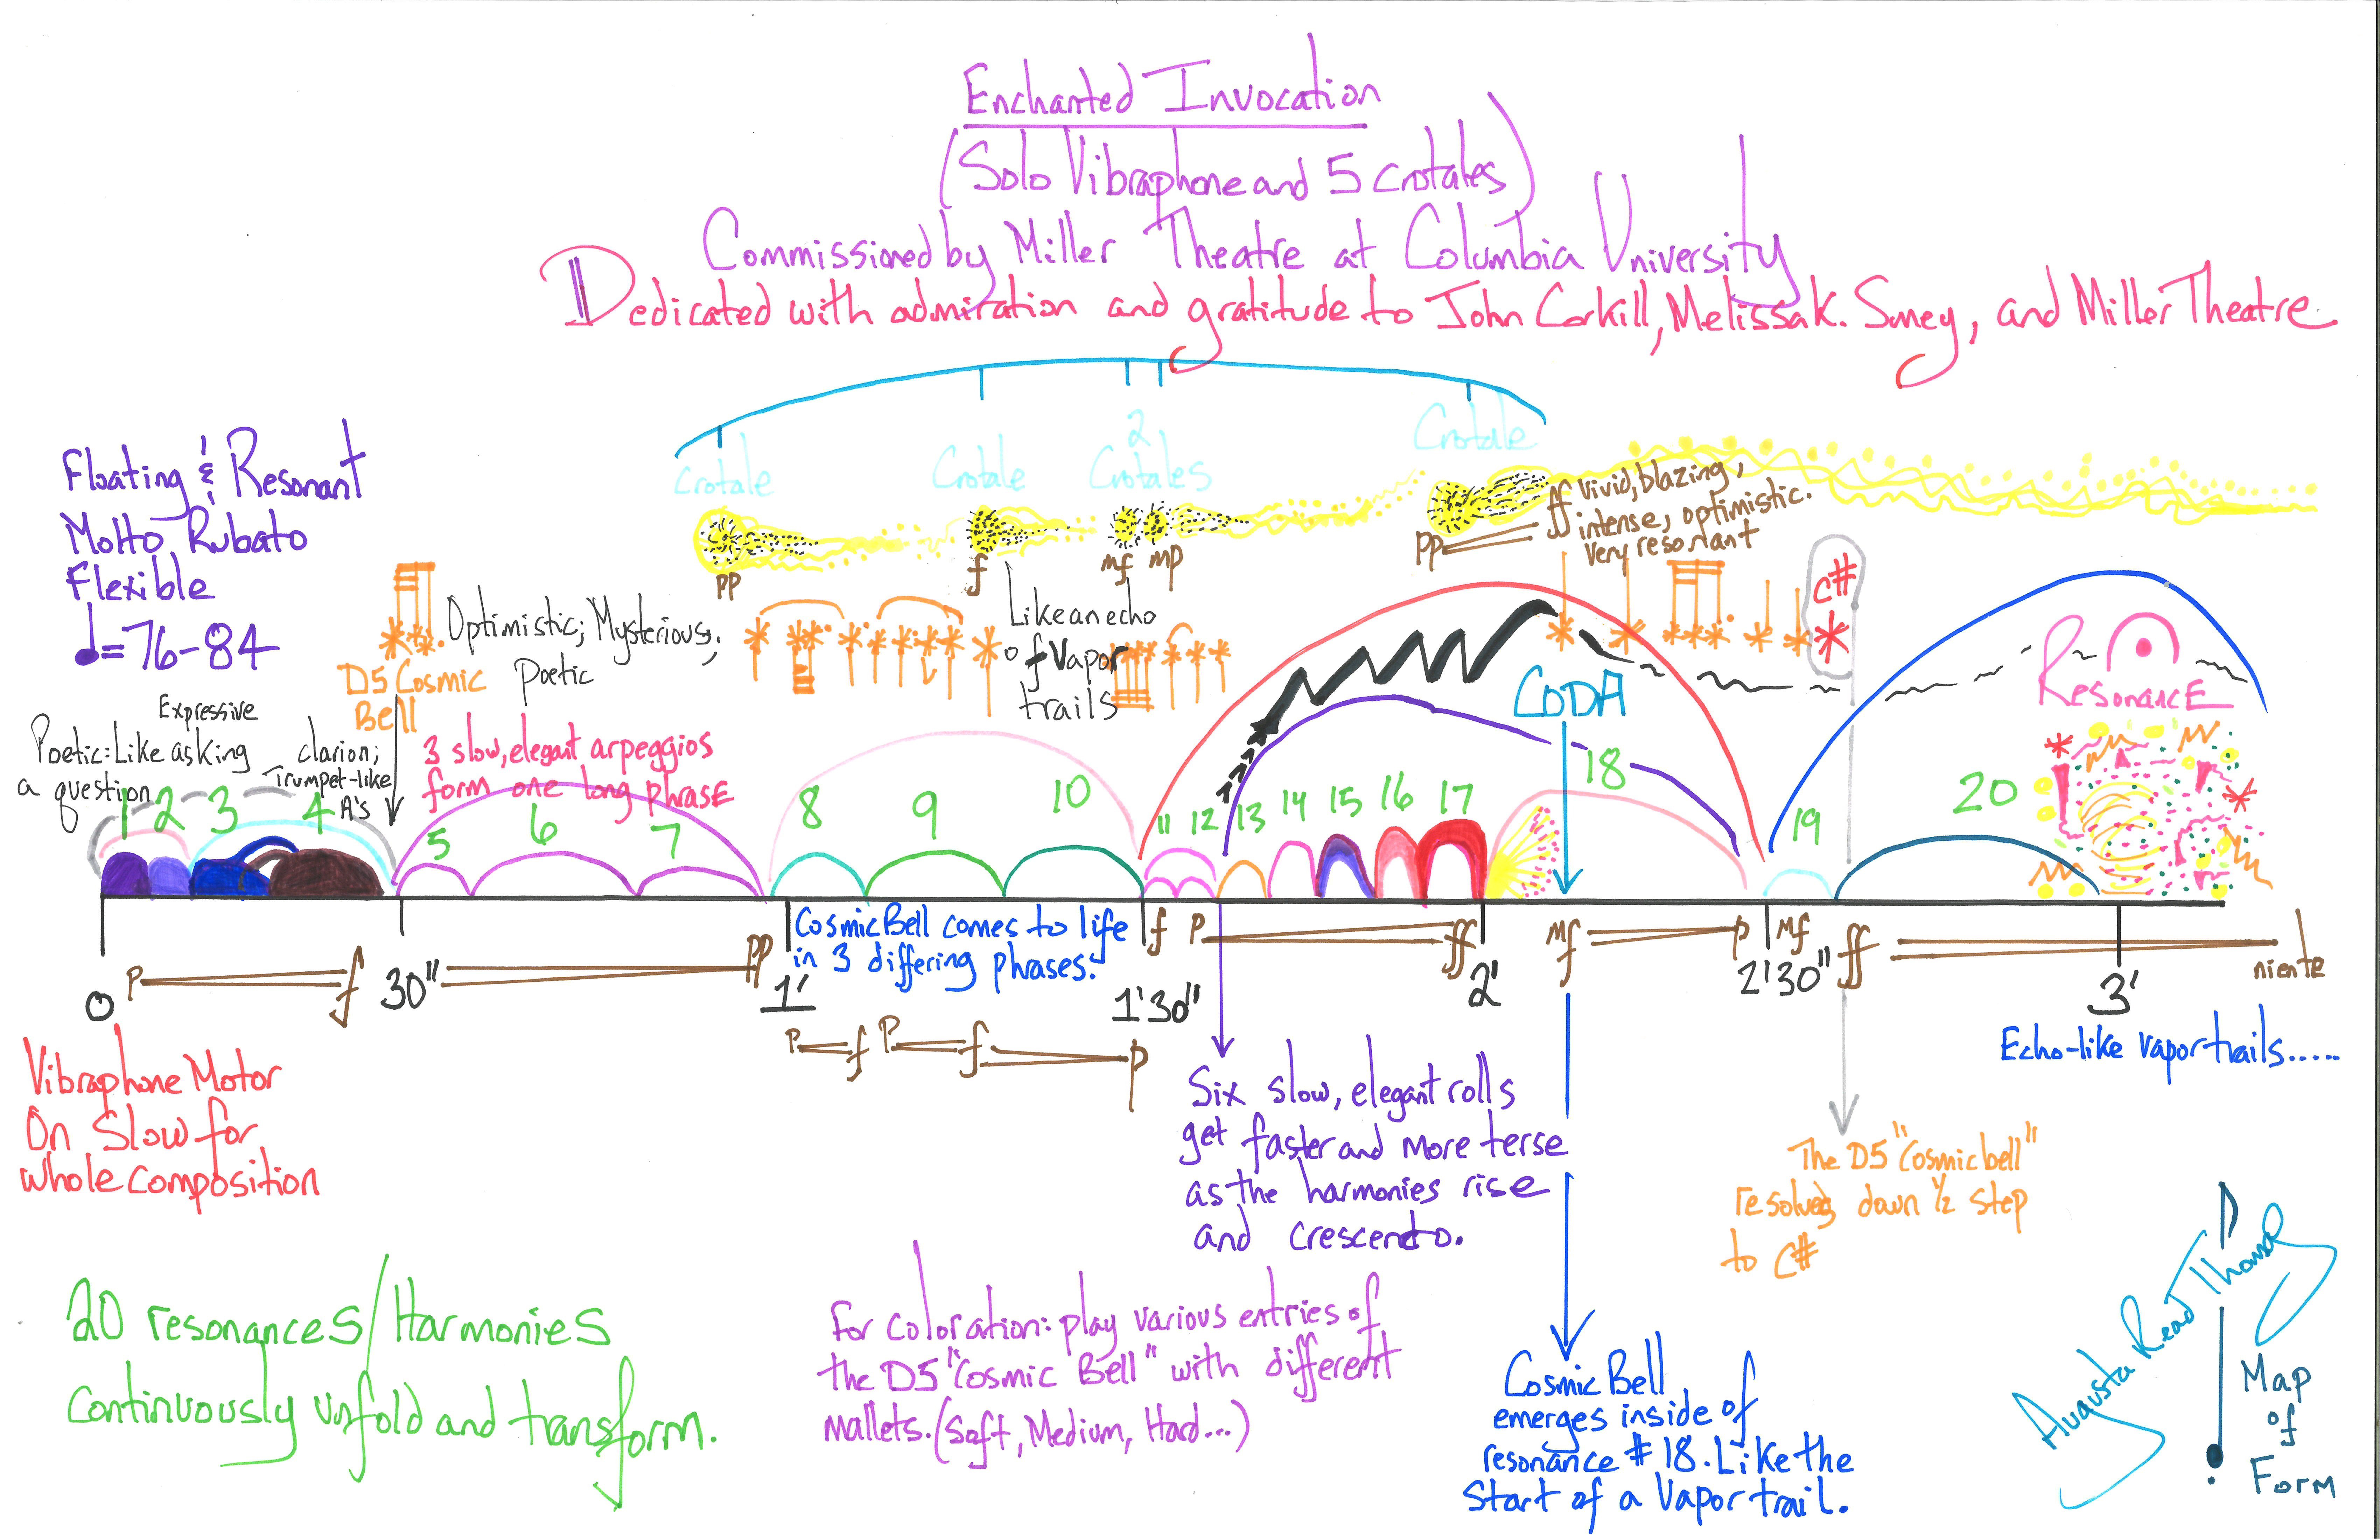 Enchanted Invocation
(Solo Vibraphone and 5 Crotales)
Commissioned by Miller Theatre at Columbia University
Dedicated with admiration and gratitude to John Corkill, Melissa K. Smey, and Miller Theatre
Floating & Resonant
Molto Rubato
Flexible
♩=76-84
Crotale
Crotale
2
Crotales
Crotale
pp
f
mf mp
pp
ff Vivid, blazing,
intense, optimistic.
Very resonant
D5 Cosmic
Bell
Optimistic; Mysterious;
Poetic
Like an echo
of Vapor
trails
C#
Resonance
CODA
Expressive
Poetic: Like asking
a question
clarion;
Trumpet-like
A's
3 slow, elegant arpeggios
form one long phrase
1 2 3 4 5 6 7 8 9 10 11 12 13 14 15 16 17 18 19 20
Cosmic Bell comes to life
in 3 differing phrases.
p f pp f p ff mf p mf ff niente
0 30" 1' 1'30" 2' 2'30" 3'
p f p f p
Echo-like vapor trails.....
Vibraphone Motor
On Slow for
whole composition
Six slow, elegant rolls
get faster and more terse
as the harmonies rise
and crescendo.
The D5 "Cosmic bell"
resolves down ½ step
to C#
20 resonances/Harmonies
continuously unfold and transform.
For coloration: play various entries of
the D5 "Cosmic Bell" with different
mallets. (Soft, Medium, Hard...)
Cosmic Bell
emerges inside of
resonance #18. Like the
Start of a Vapor trail.
Augusta Read Thomas
Map
of
Form